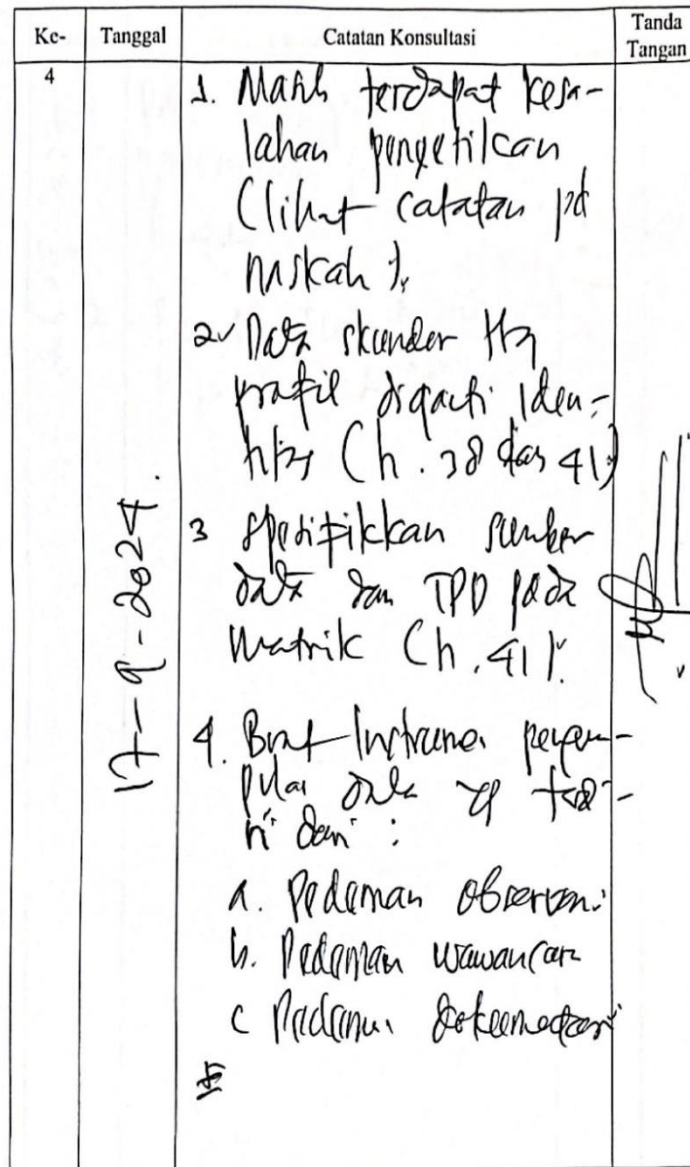 Ke-
Tanggal
Catatan Konsultasi
Tanda
Tangan
4
17-9-2024.
1. Masih terdapat kesa-
lahan pengetikan
(lihat catatan pd
naskah).
2. Data skunder ttg
profil diganti iden-
titas (h. 38 dan 41)
3 Spesifikkan sumber
data dan TPD pada
matrik (h. 41).
4. Buat Instrumen pengum-
pulan data yg terdi-
ri dari :
a. Pedoman observasi
b. Pedoman wawancara
c Pedoman dokumentasi